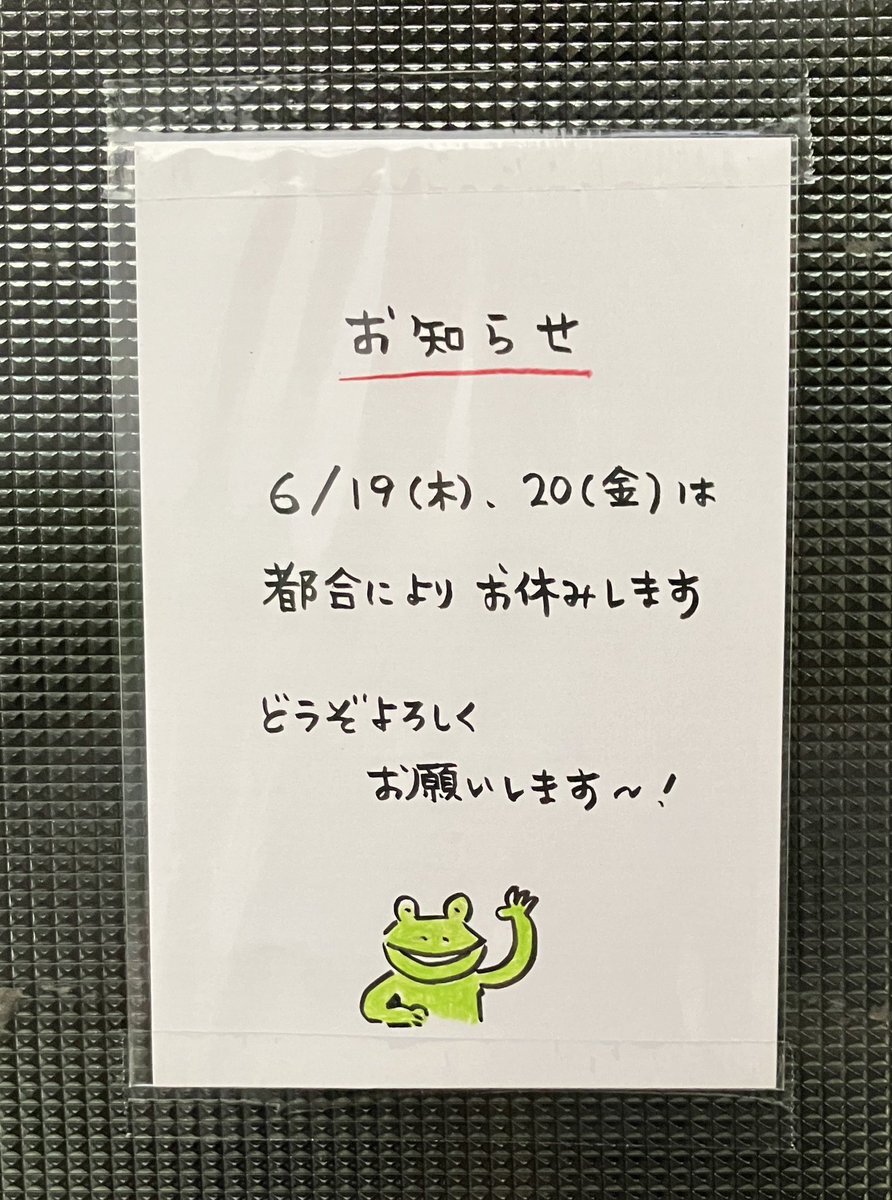 お知らせ
6/19(木)、20(金)は
都合により お休みします
どうぞよろしく
お願いします〜!